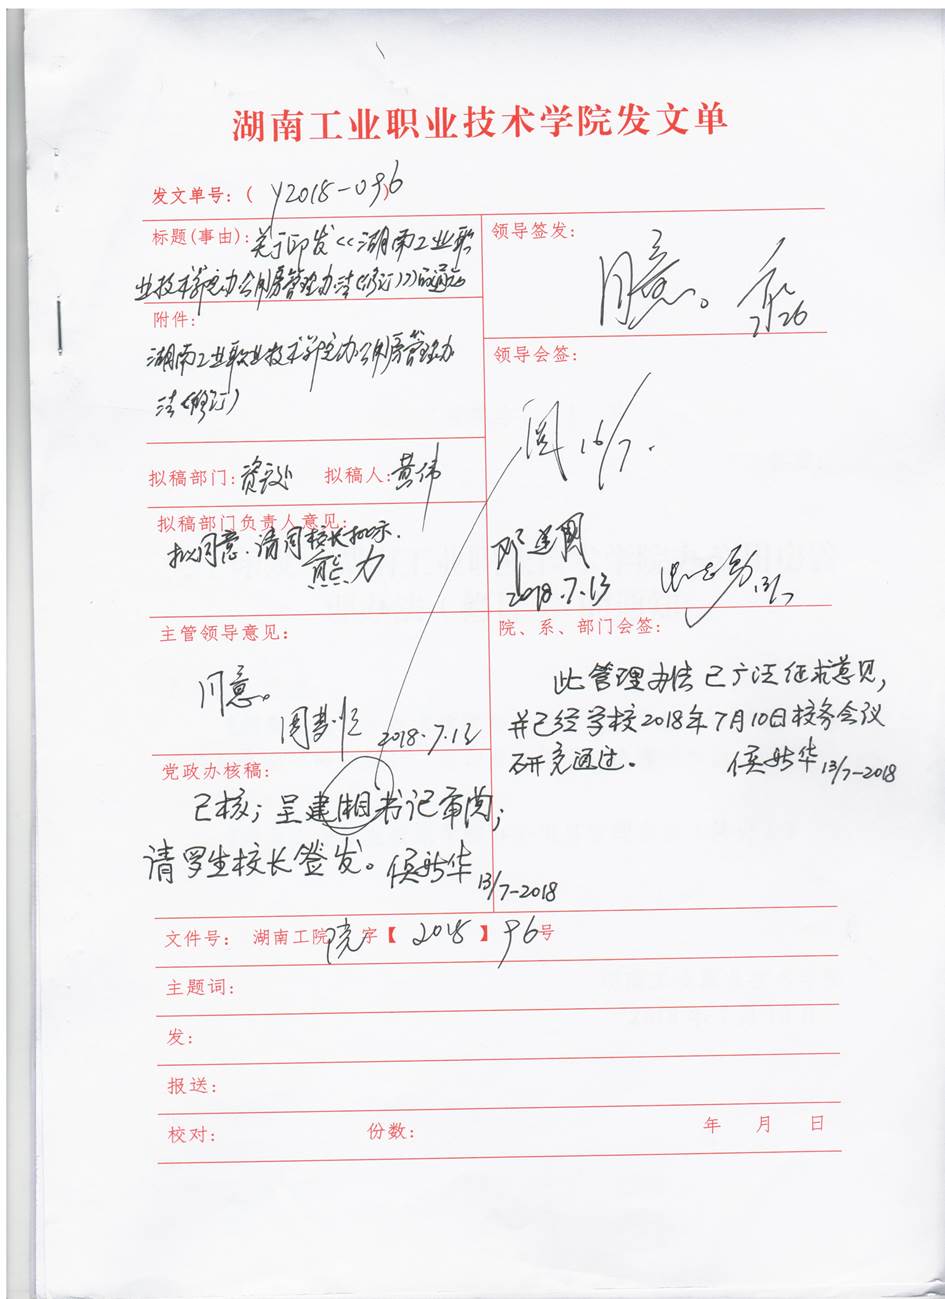 湖南工业职业技术学院发文单
发文单号：( Y2018-096
标题(事由)：关于印发<<湖南工业职
业技术学院办公用房管理办法(修订)>>的通知
附件：
湖南工业职业技术学院办公用房管理办
法(修订)
拟稿部门：资设 拟稿人：黄伟
拟稿部门负责人意见：
拟同意，请周校长批示.
熊力
主管领导意见：
同意。
2018.7.13
党政办核稿：
已核；呈建湘书记审阅；
请罗生校长签发。侯新华 13/7-2018
领导签发：
同意。
7.26
领导会签：
阅 16/7.
邓建
2018.7.13
13/7
院、系、部门会签：
此管理办法已广泛征求意见，
并已经学校2018年7月10日校务会议
研究通过。
侯新华 13/7-2018
文件号：湖南工院院字【2018】96号
主题词：
发：
报送：
校对： 份数： 年 月 日